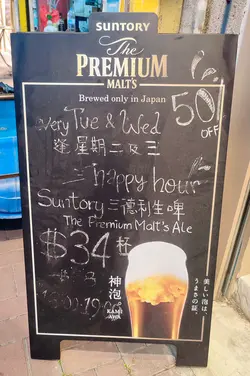 SUNTORY
The
PREMIUM
MALT'S
Brewed only in Japan
50
OFF
very Tue & Wed
逢星期二及三
happy hour
Suntory 三德利生啤
The Premium Malt's Ale
$34 杯
神泡。
KAMI
AWA
美しい泡は、
うまさの証。